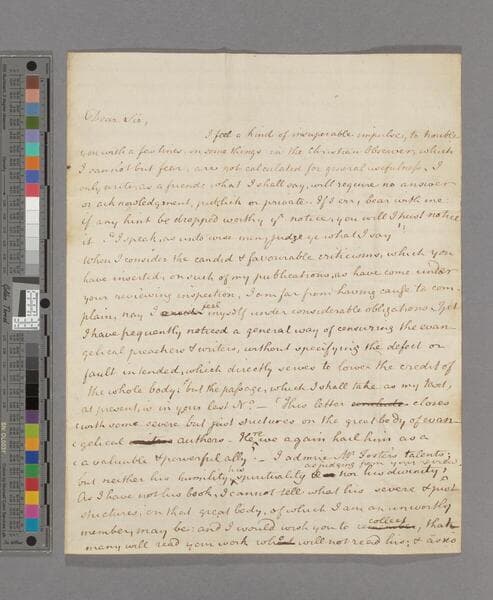 Dear Sir,
I feel a kind of insuperable impulse, to trouble
you with a few lines, on some things in the Christian Observer, which
I cannot but fear, are not calculated for general usefulness. I
only write, as a friend; what I shall say, will require no answer
or acknowledgment, publick or private. If I err, bear with me
if any hint be dropped worthy yr notice, you will I trust notice
it. "I speak, as unto wise men; judge ye what I say".
When I consider the candid & favourable criticisms, which you
have inserted, on such of my publications, as have come under
your reviewing inspection; I am far from having cause to com
plain, nay I feel myself under considerable obligations. Yet
I have frequently noticed a general way of censuring the evan
gelical preachers & writers, without specifying the defect or
fault intended, which directly serves to lower the credit of
the whole body; but the passage, which I shall take as my text,
at present, is in your last No. — 'This letter closes
'with some severe but just strictures on the great body of evan
'gelical authors — Here we again hail him as a
'valuable & powerful ally'. — I admire Mr Fosters talents;
but neither his humility, his spirituality nor his divinity, as judging from your review
As I have not his book, I cannot tell what his severe & just
strictures, on that great body, of which I am an unworthy
member, may be: and I would wish you to recollect, that
many will read your work who will not read his; & as so